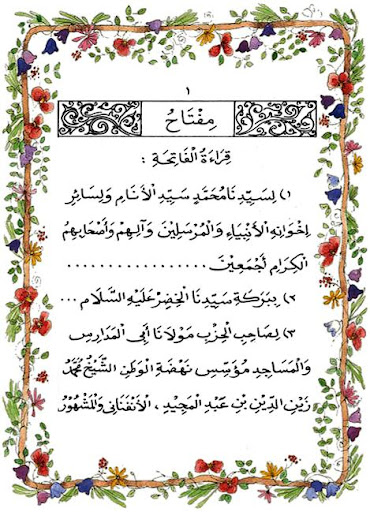 ١
مِفْتَاحُ
قِرَاءَةُ الْفَاتِحَةِ :
١) لِسَيِّدِنَا مُحَمَّدٍ سَيِّدِ الْأَنَامِ وَلِسَائِرِ
إِخْوَانِهِ الْأَنْبِيَاءِ وَالْمُرْسَلِيْنَ وَآلِهِمْ وَأَصْحَابِهِمُ
الْكِرَامِ أَجْمَعِيْنَ ................
٢) بِبَرَكَةِ سَيِّدِنَا الْخَضِرِ عَلَيْهِ السَّلَام ...
٣) لِصَاحِبِ الْحِزْبِ مَوْلَانَا أَبِي الْمَدَارِسِ
وَالْمَسَاجِدِ مُؤَسِّسِ نَهْضَةِ الْوَطَنِ الشَّيْخُ مُحَمَّدُ
زَيْنِ الدِّيْنِ بِنِ عَبْدِ الْمَجِيدِ ، الْأَنْفَنَانِي وَالْمَشْهُوْرُ